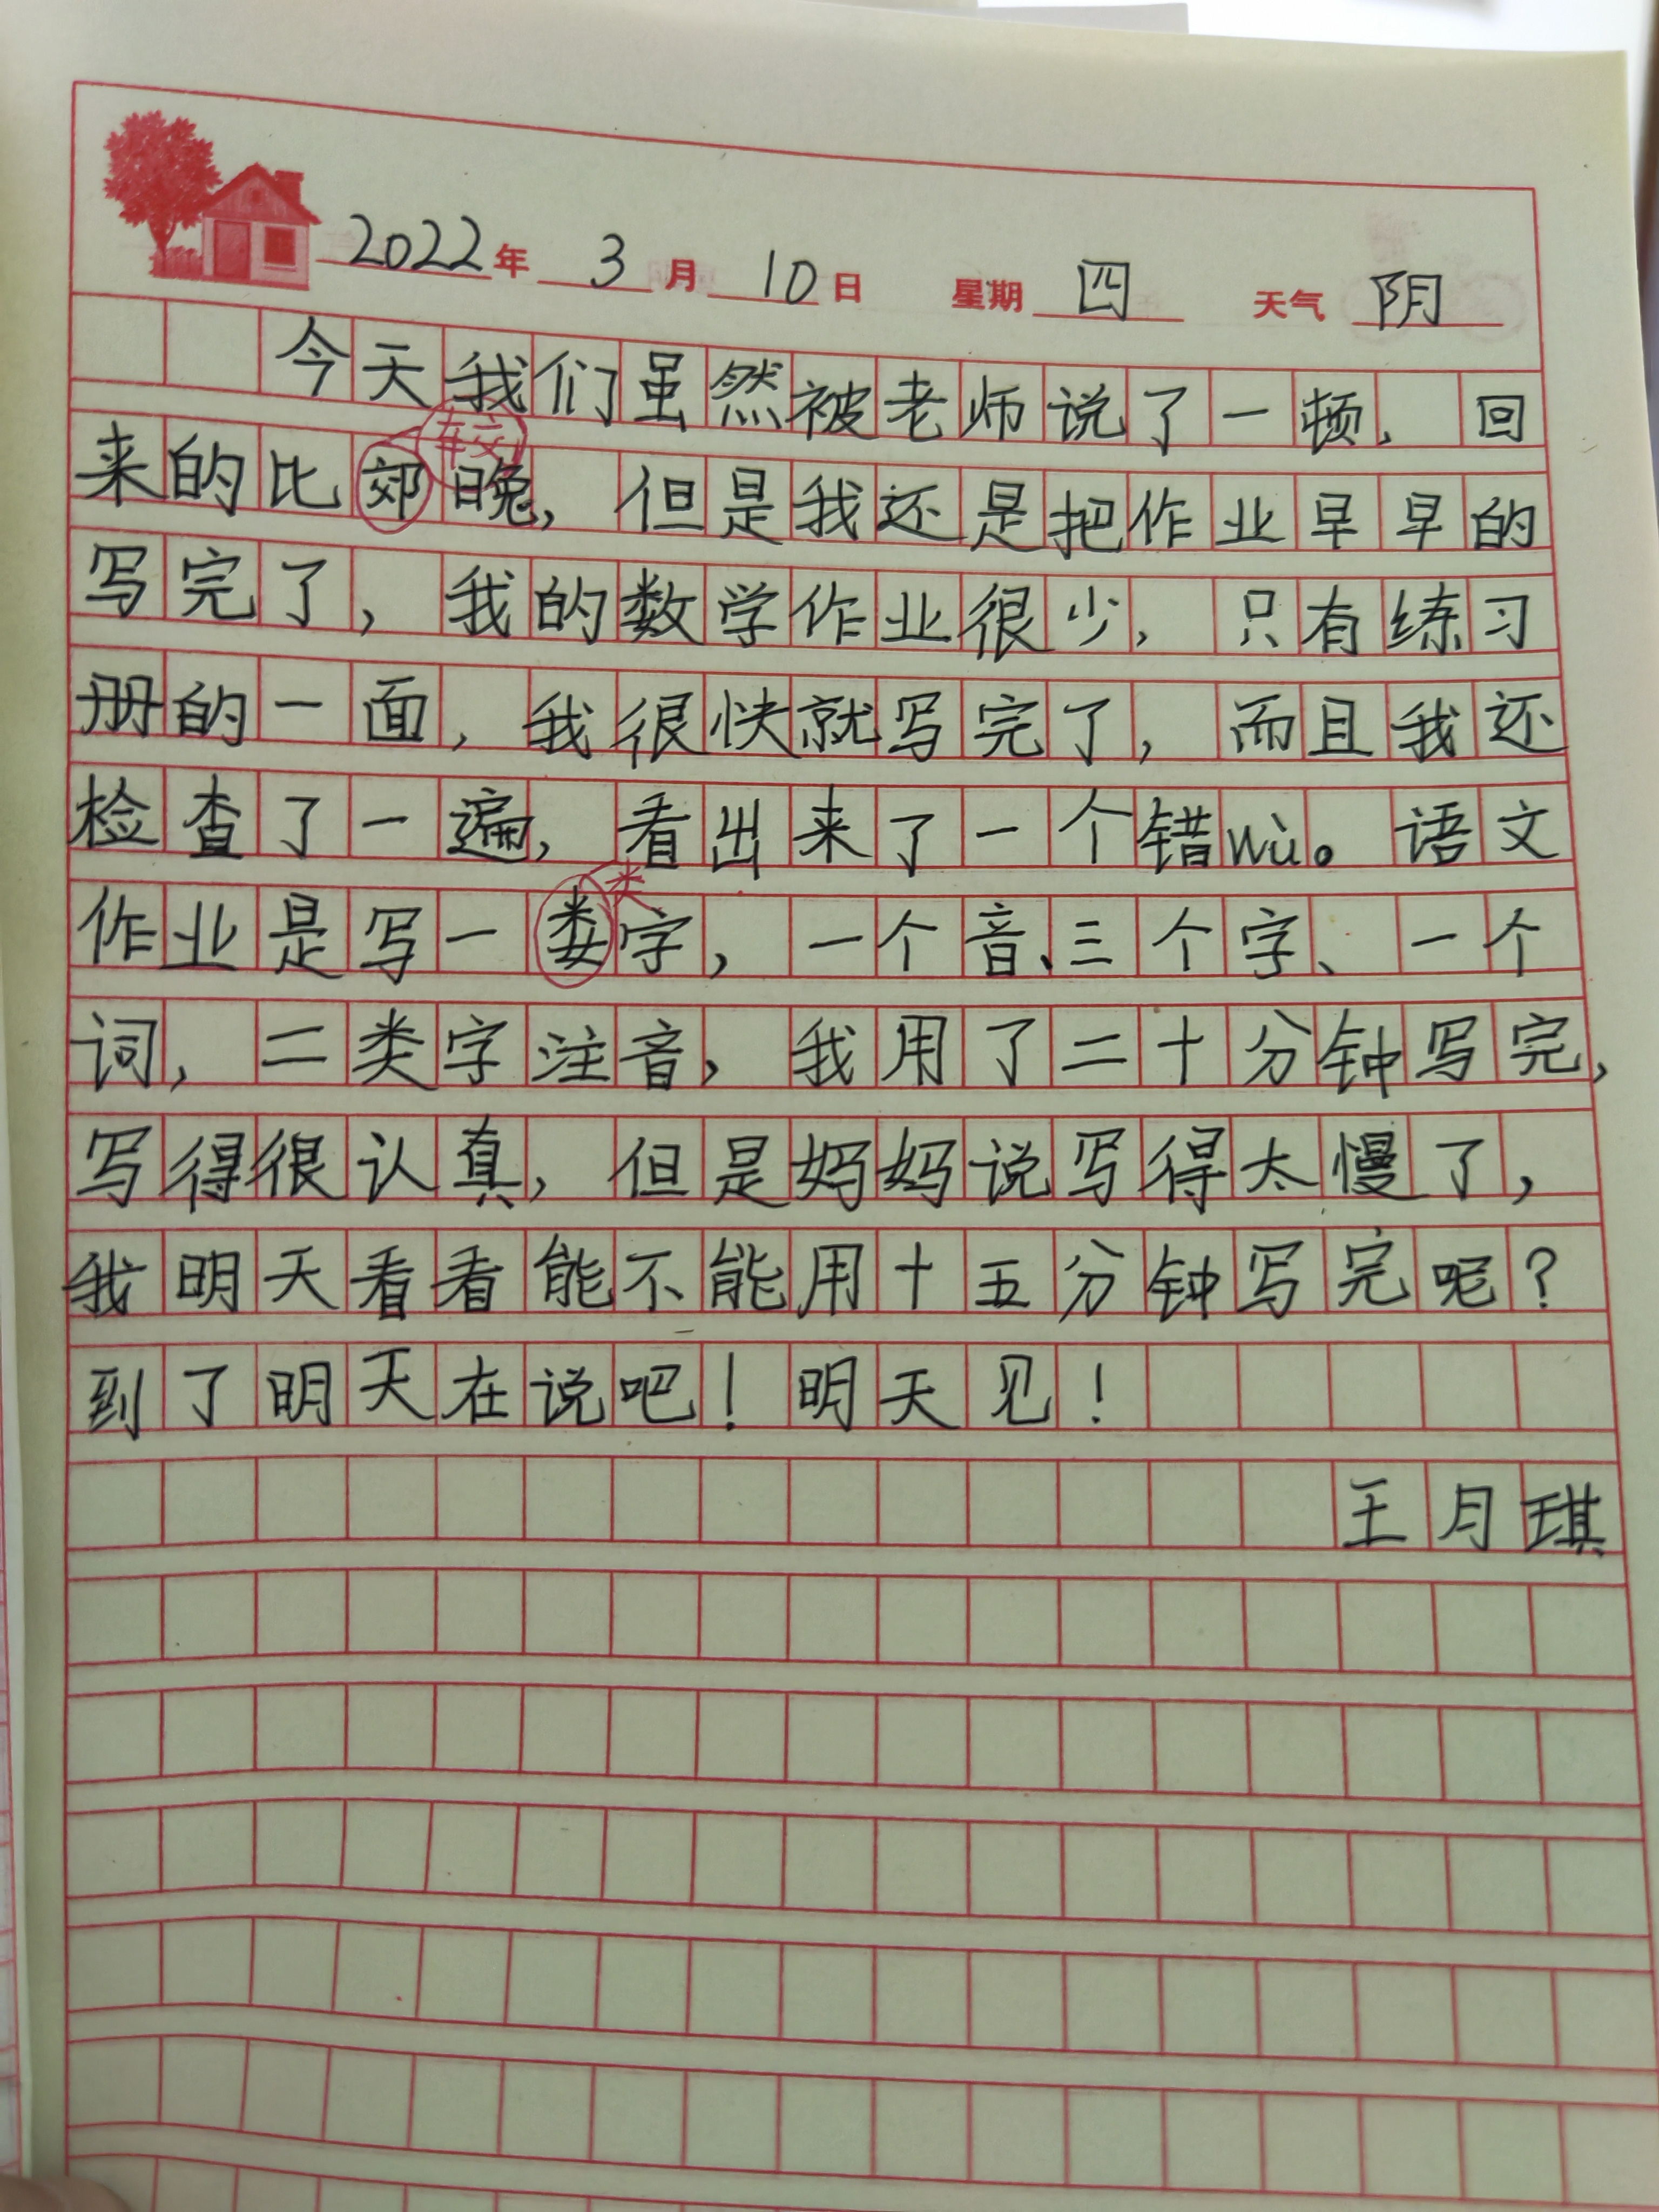 2022年 3月 10日 星期 四 天气 阴
今天我们虽然被老师说了一顿，回
较
来的比郊晚，但是我还是把作业早早的
写完了，我的数学作业很少，只有练习
册的一面，我很快就写完了，而且我还
检查了一遍，看出来了一个错wù。语文
类
作业是写一娄字，一个音、三个字、一个
词，二类字注音，我用了二十分钟写完，
写得很认真，但是妈妈说写得太慢了，
我明天看看能不能用十五分钟写完呢？
到了明天在说吧！明天见！
王月琪